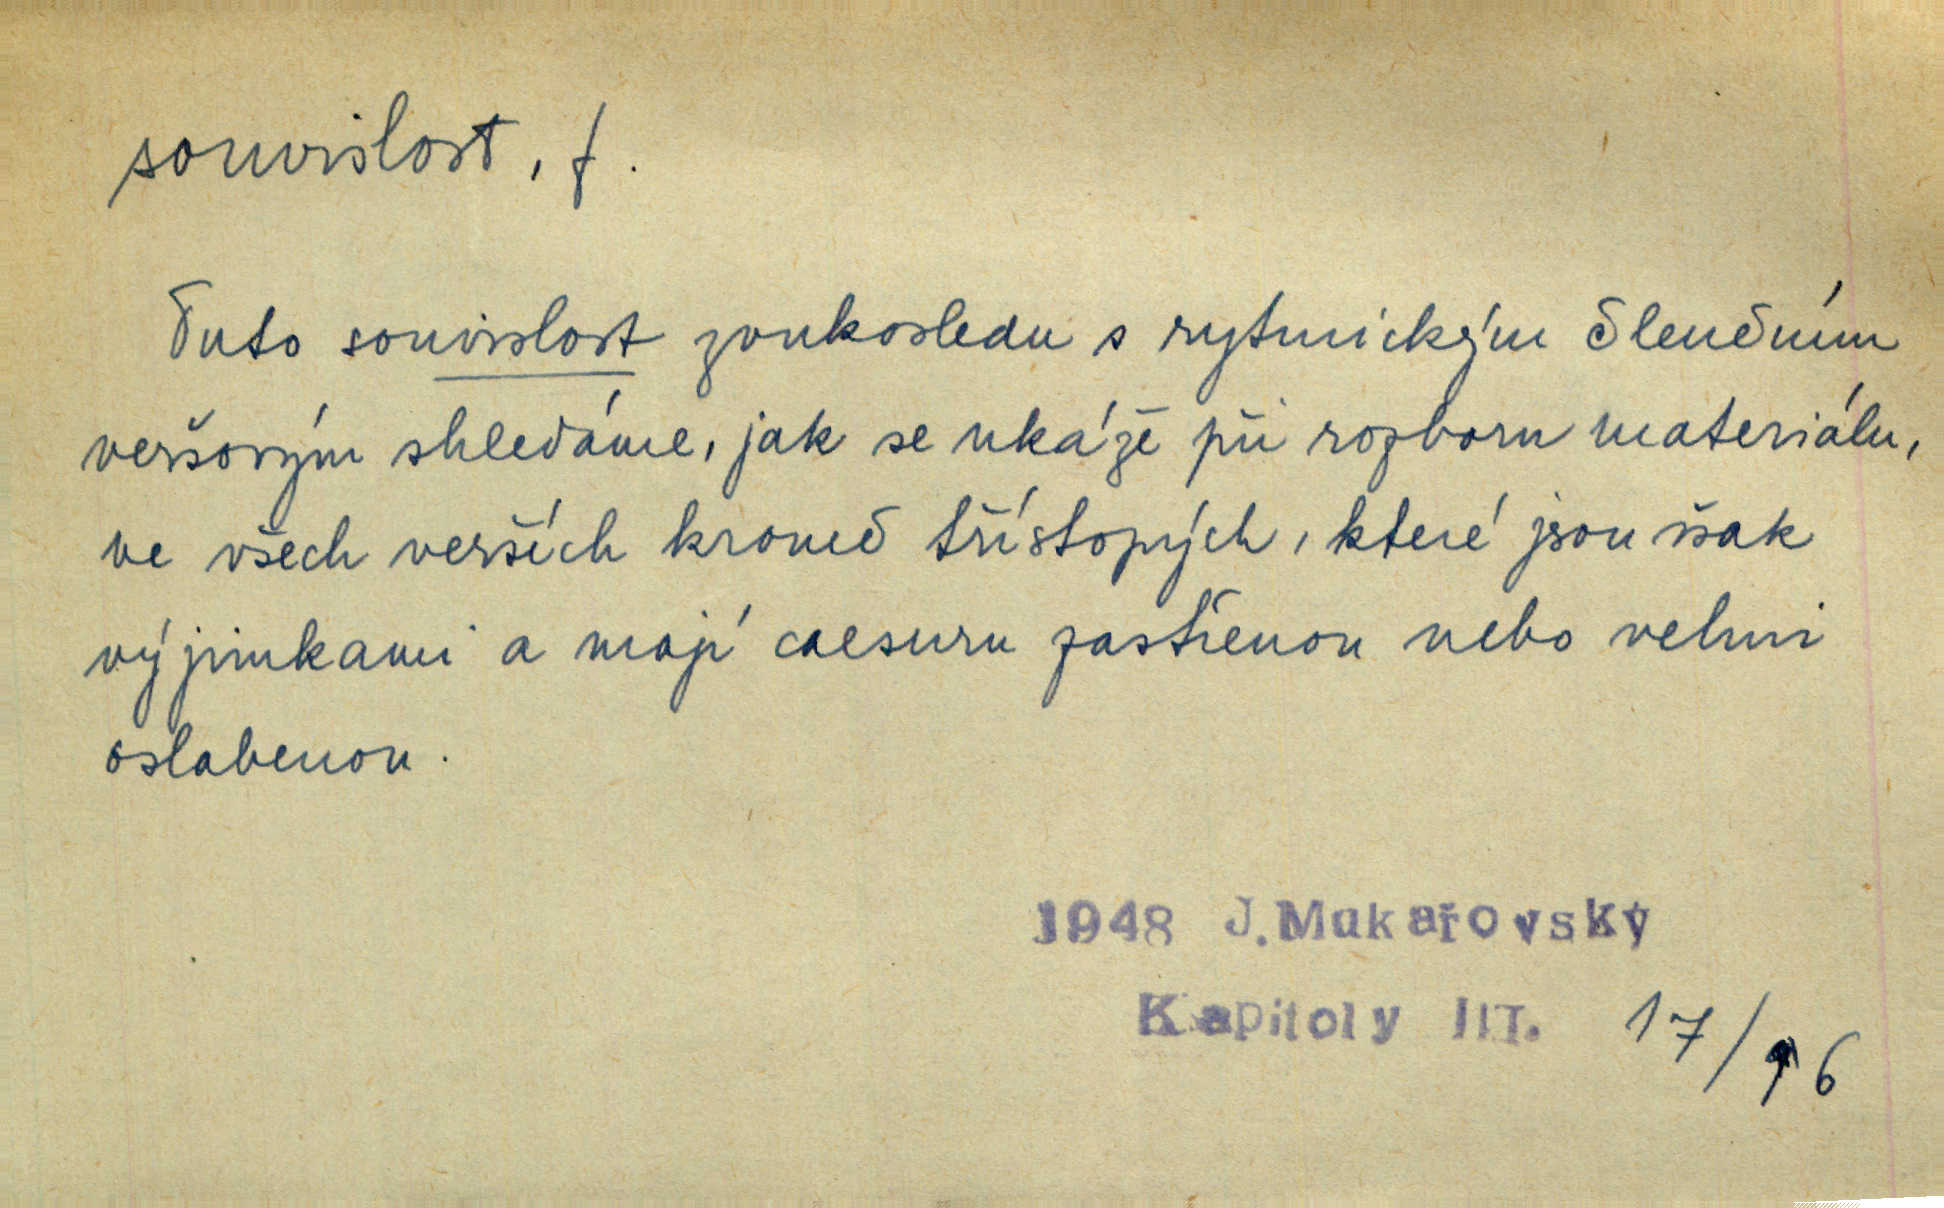 souvislost, f.
Tuto souvislost zvukosledu s rytmickým členěním
veršovým shledáme, jak se ukáže při rozboru materiálu,
ve všech verších kromě třístopých, které jsou však
výjimkami a mají caesuru zastřenou nebo velmi
oslabenou.
1948 J.Mukařovský
Kapitoly III. 17/